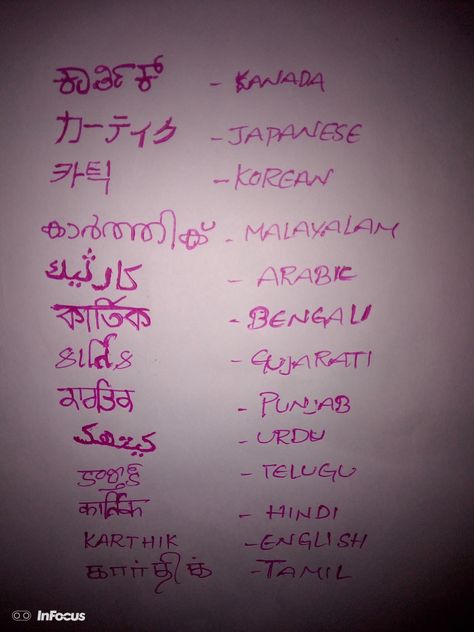 ಕಾರ್ತಿಕ್ - KANADA
カーティク - JAPANESE
카틱 - KOREAN
കാർത്തിക് - MALAYALAM
كارثيك - ARABIC
কার্তিক - BENGALI
કાર્તિક - GUJARATI
ਕਾਰਤਿਕ - PUNJAB
- URDU
- TELUGU
कार्तिक - HINDI
KARTHIK - ENGLISH
கார்திக் - TAMIL
InFocus